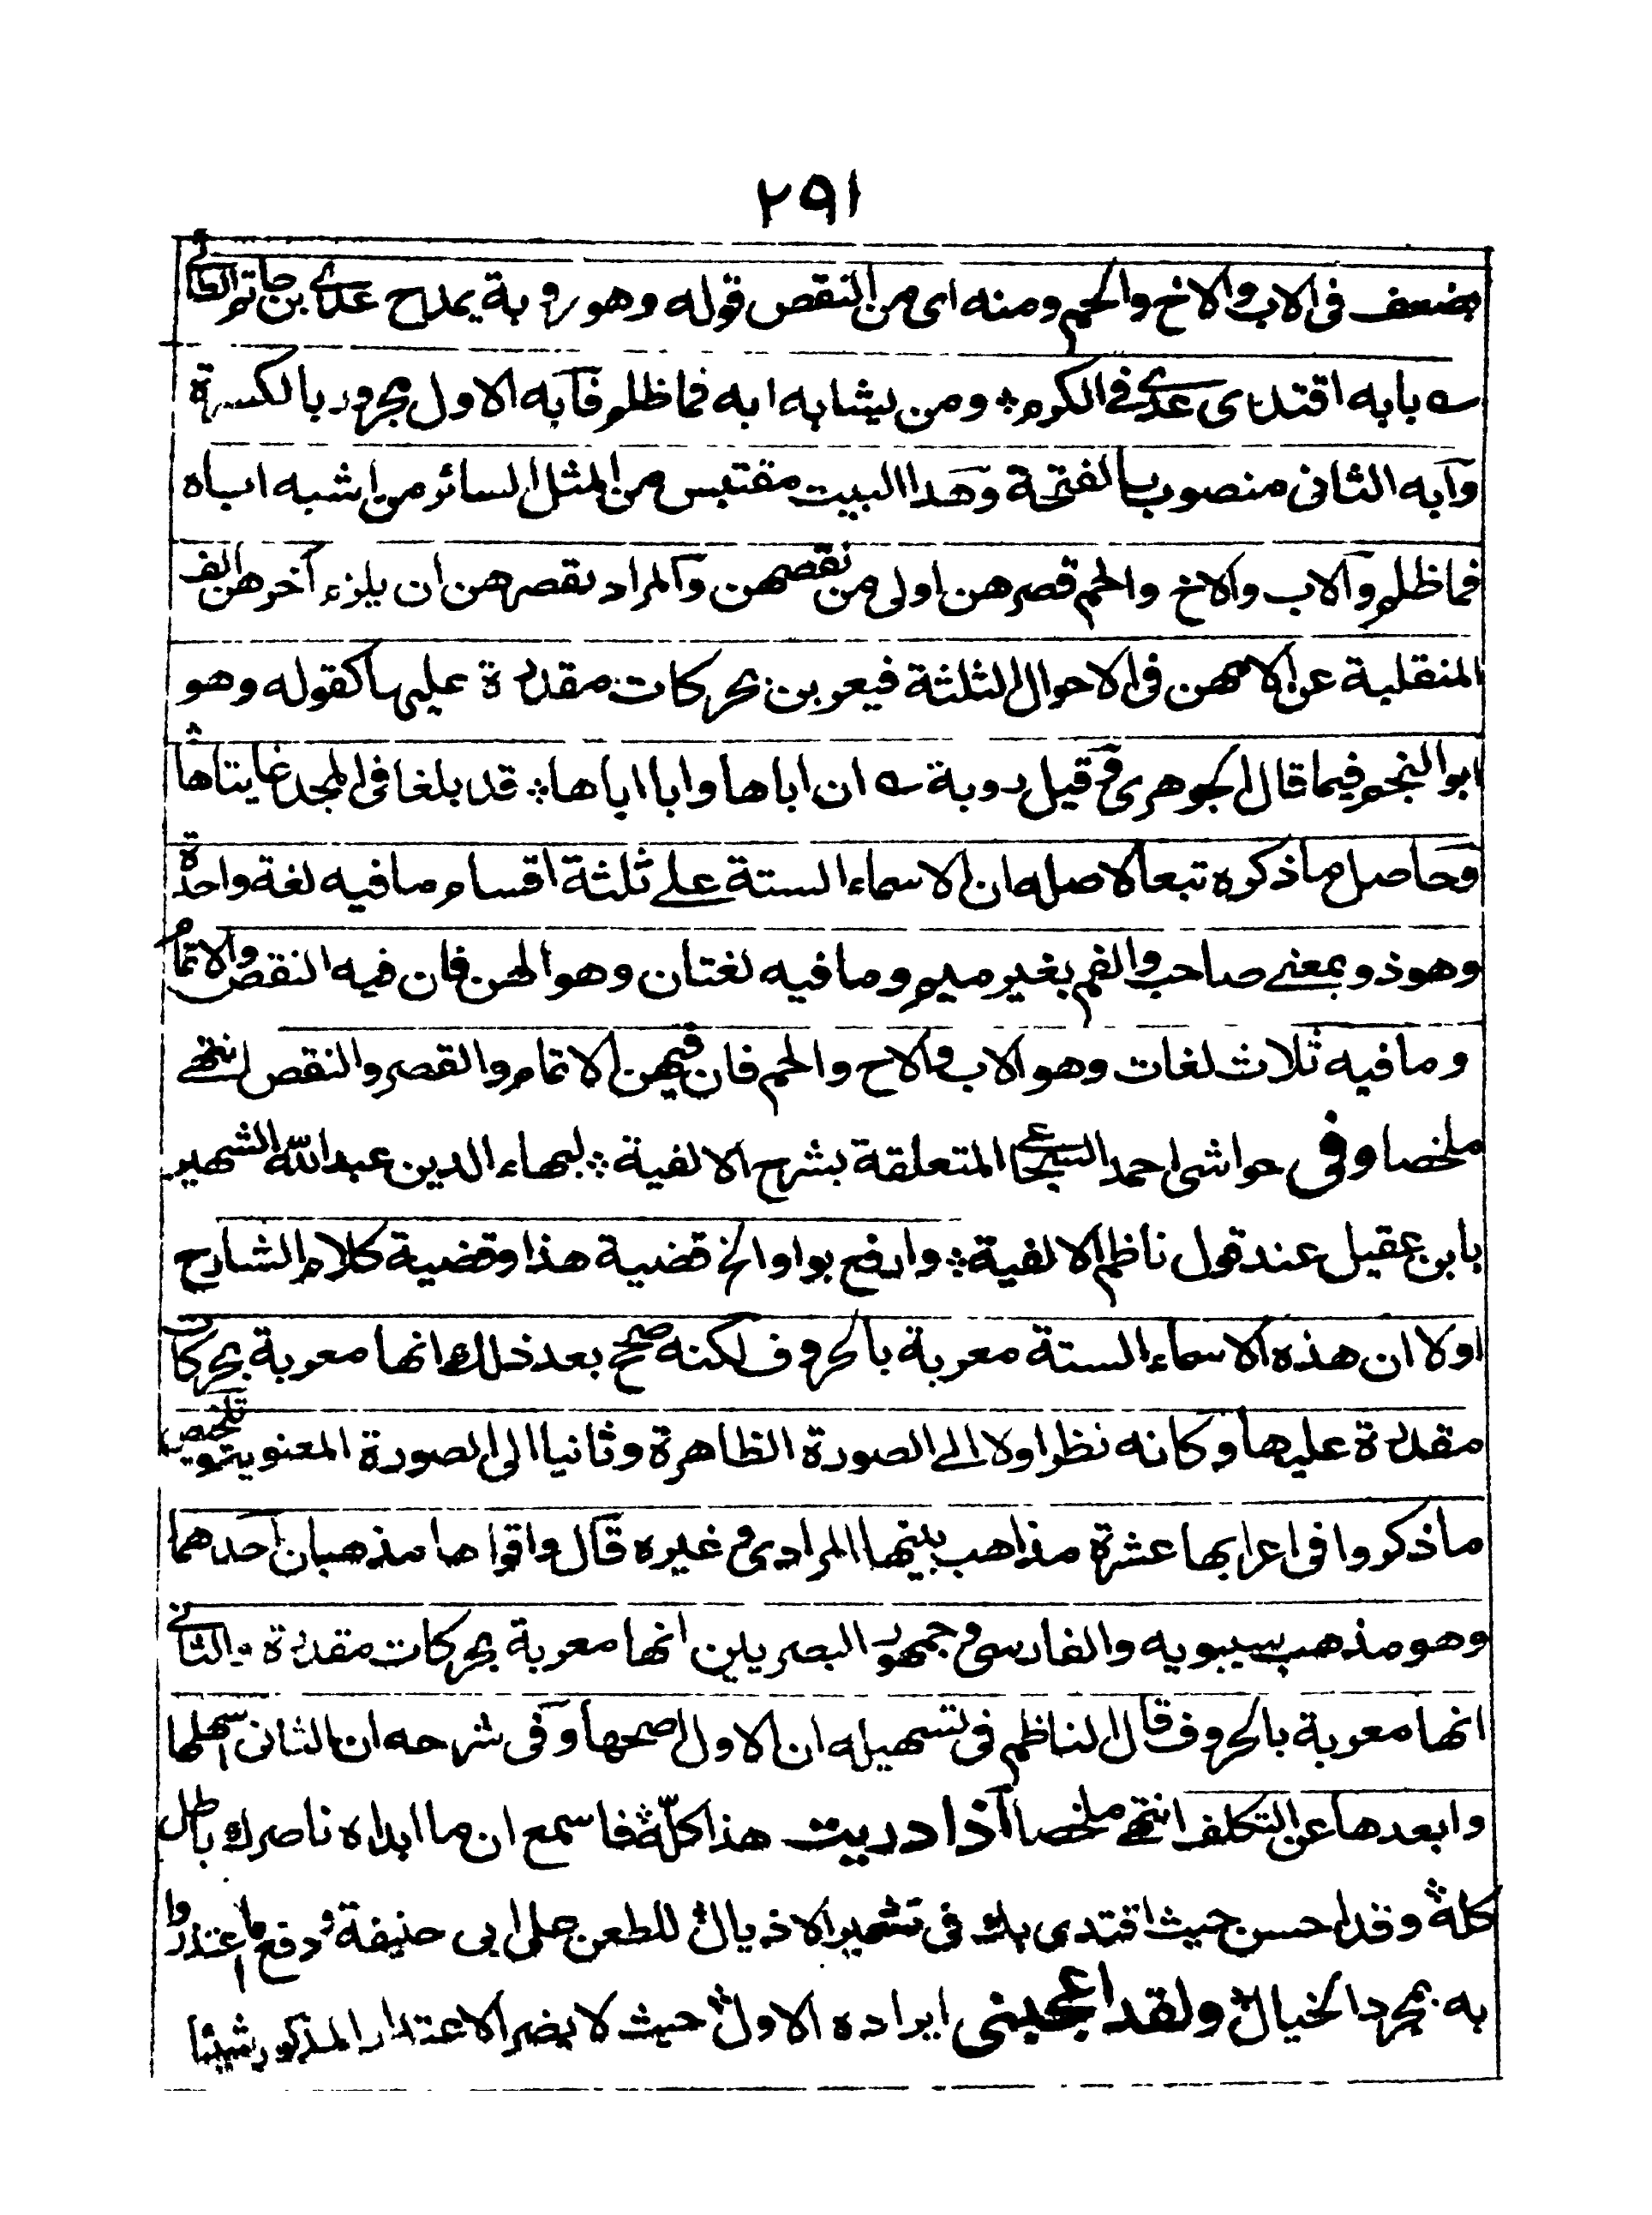 ٢٩١
يضعف فى الاب والاخ والحم ومنه اى من النقص قوله وهو روبة يمدح عدى بن حاتم الطائى
ے بابه اقتدى عدى فى الكرم ۞ ومن يشابه ابه فما ظلم فآبه الاول مجرور بالكسرة
وآبه الثانى منصوب بالفتحة وهذا البيت مقتبس من المثل السائر من اشبه اباه
فما ظلم والاب والاخ والحم قصرهن اولى من نقصهن والمراد بقصرهن ان يلزم آخرهن الف
المنقلبة عن لامهن فى الاحوال الثلثة فيعربن بحركات مقدرة عليها كقوله وهو
ابو النجم فيما قال الجوهرى وقيل روبة ے ان اباها وابا اباها ۞ قد بلغا فى المجد غايتاها
وحاصل ما ذكره تبعا لاصله ان الاسماء الستة على ثلثة اقسام ما فيه لغة واحدة
وهو ذو بمعنى صاحب والفم بغير ميم وما فيه لغتان وهو الهن فان فيه النقص والاتمام
وما فيه ثلاث لغات وهو الاب والاح والحم فان فيهن الاتمام والقصر والنقص انتهى
ملخصا وفى حواشى احمد السجاعى المتعلقة بشرح الالفية ۞ لبهاء الدين عبد الله الشهير
بابن عقيل عند قول ناظم الالفية ۞ وارفع بواو الخ قضية هذا وقضية كلام الشارح
اولا ان هذه الاسماء الستة معربة بالحروف لكنه صحح بعد ذلك انها معربة بحركات
مقدرة عليها وكانه نظر اولا الى الصورة الظاهرة وثانيا الى الصورة المعنوية وتلخص
ما ذكروا فى اعرابها عشرة مذاهب بينها المرادى وغيره قال واقواها مذهبان احدهما
وهو مذهب سيبويه والفارسى وجمهور البصريين انها معربة بحركات مقدرة ۔ والثانى
انها معربة بالحروف قال الناظم فى تسهيله ان الاول اصحها وفى شرحه ان الثانى اسهلها
وابعدها عن التكلف انتهى ملخصا اذا دريت هذا كلّه فاسمع ان ما ابداه ناصرك باطل
كله وقد احسن حيث اقتدى بك فى تشمير الاذيال للطعن على ابى حنيفة ودفع ما اعتذروا
به بمجرد الخيال ولقد اعجبنى ايراده الاول حيث لا يضر الاعتذار المذكور شيئا